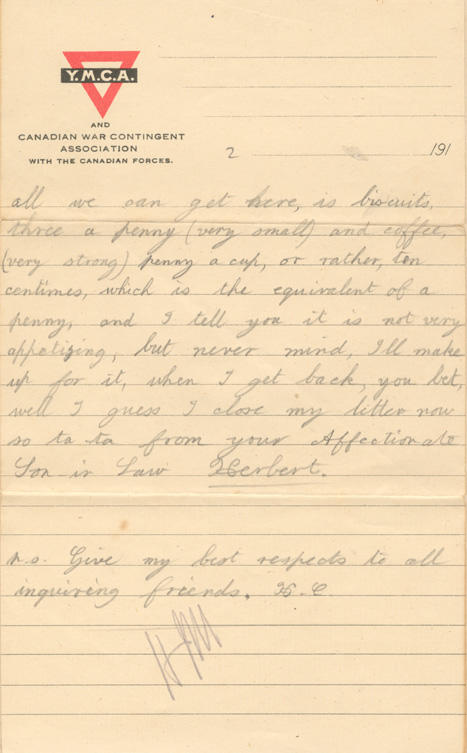 Y.M.C.A.
AND
CANADIAN WAR CONTINGENT
ASSOCIATION
WITH THE CANADIAN FORCES.
2 191
all we can get here, is biscuits,
three a penny (very small) and coffee,
(very strong) penny a cup, or rather, ten
centimes, which is the equivalent of a
penny, and I tell you it is not very
appetizing, but never mind, I'll make
up for it, when I get back, you bet,
well I guess I close my letter now
so ta-ta from your Affectionate
Son-in Law Herbert.
P.S. Give my best respects to all
inquireing friends. H.C.